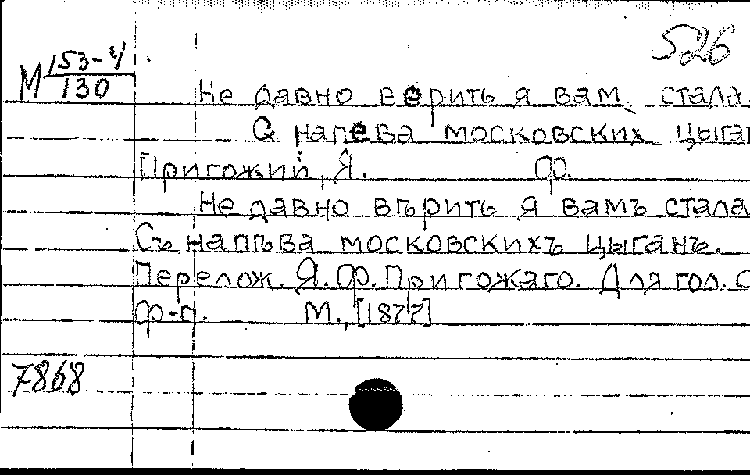 526
М 153-4/130
Не давно верить я вам стала.
С напева московских цыган
Пригожий, Я. Ф.
Не давно вѣрить я вамъ стала
Съ напѣва московскихъ цыганъ.
Перелож. Я. Ф. Пригожаго. Для гол. с
ф-п. М., [1877]
7868